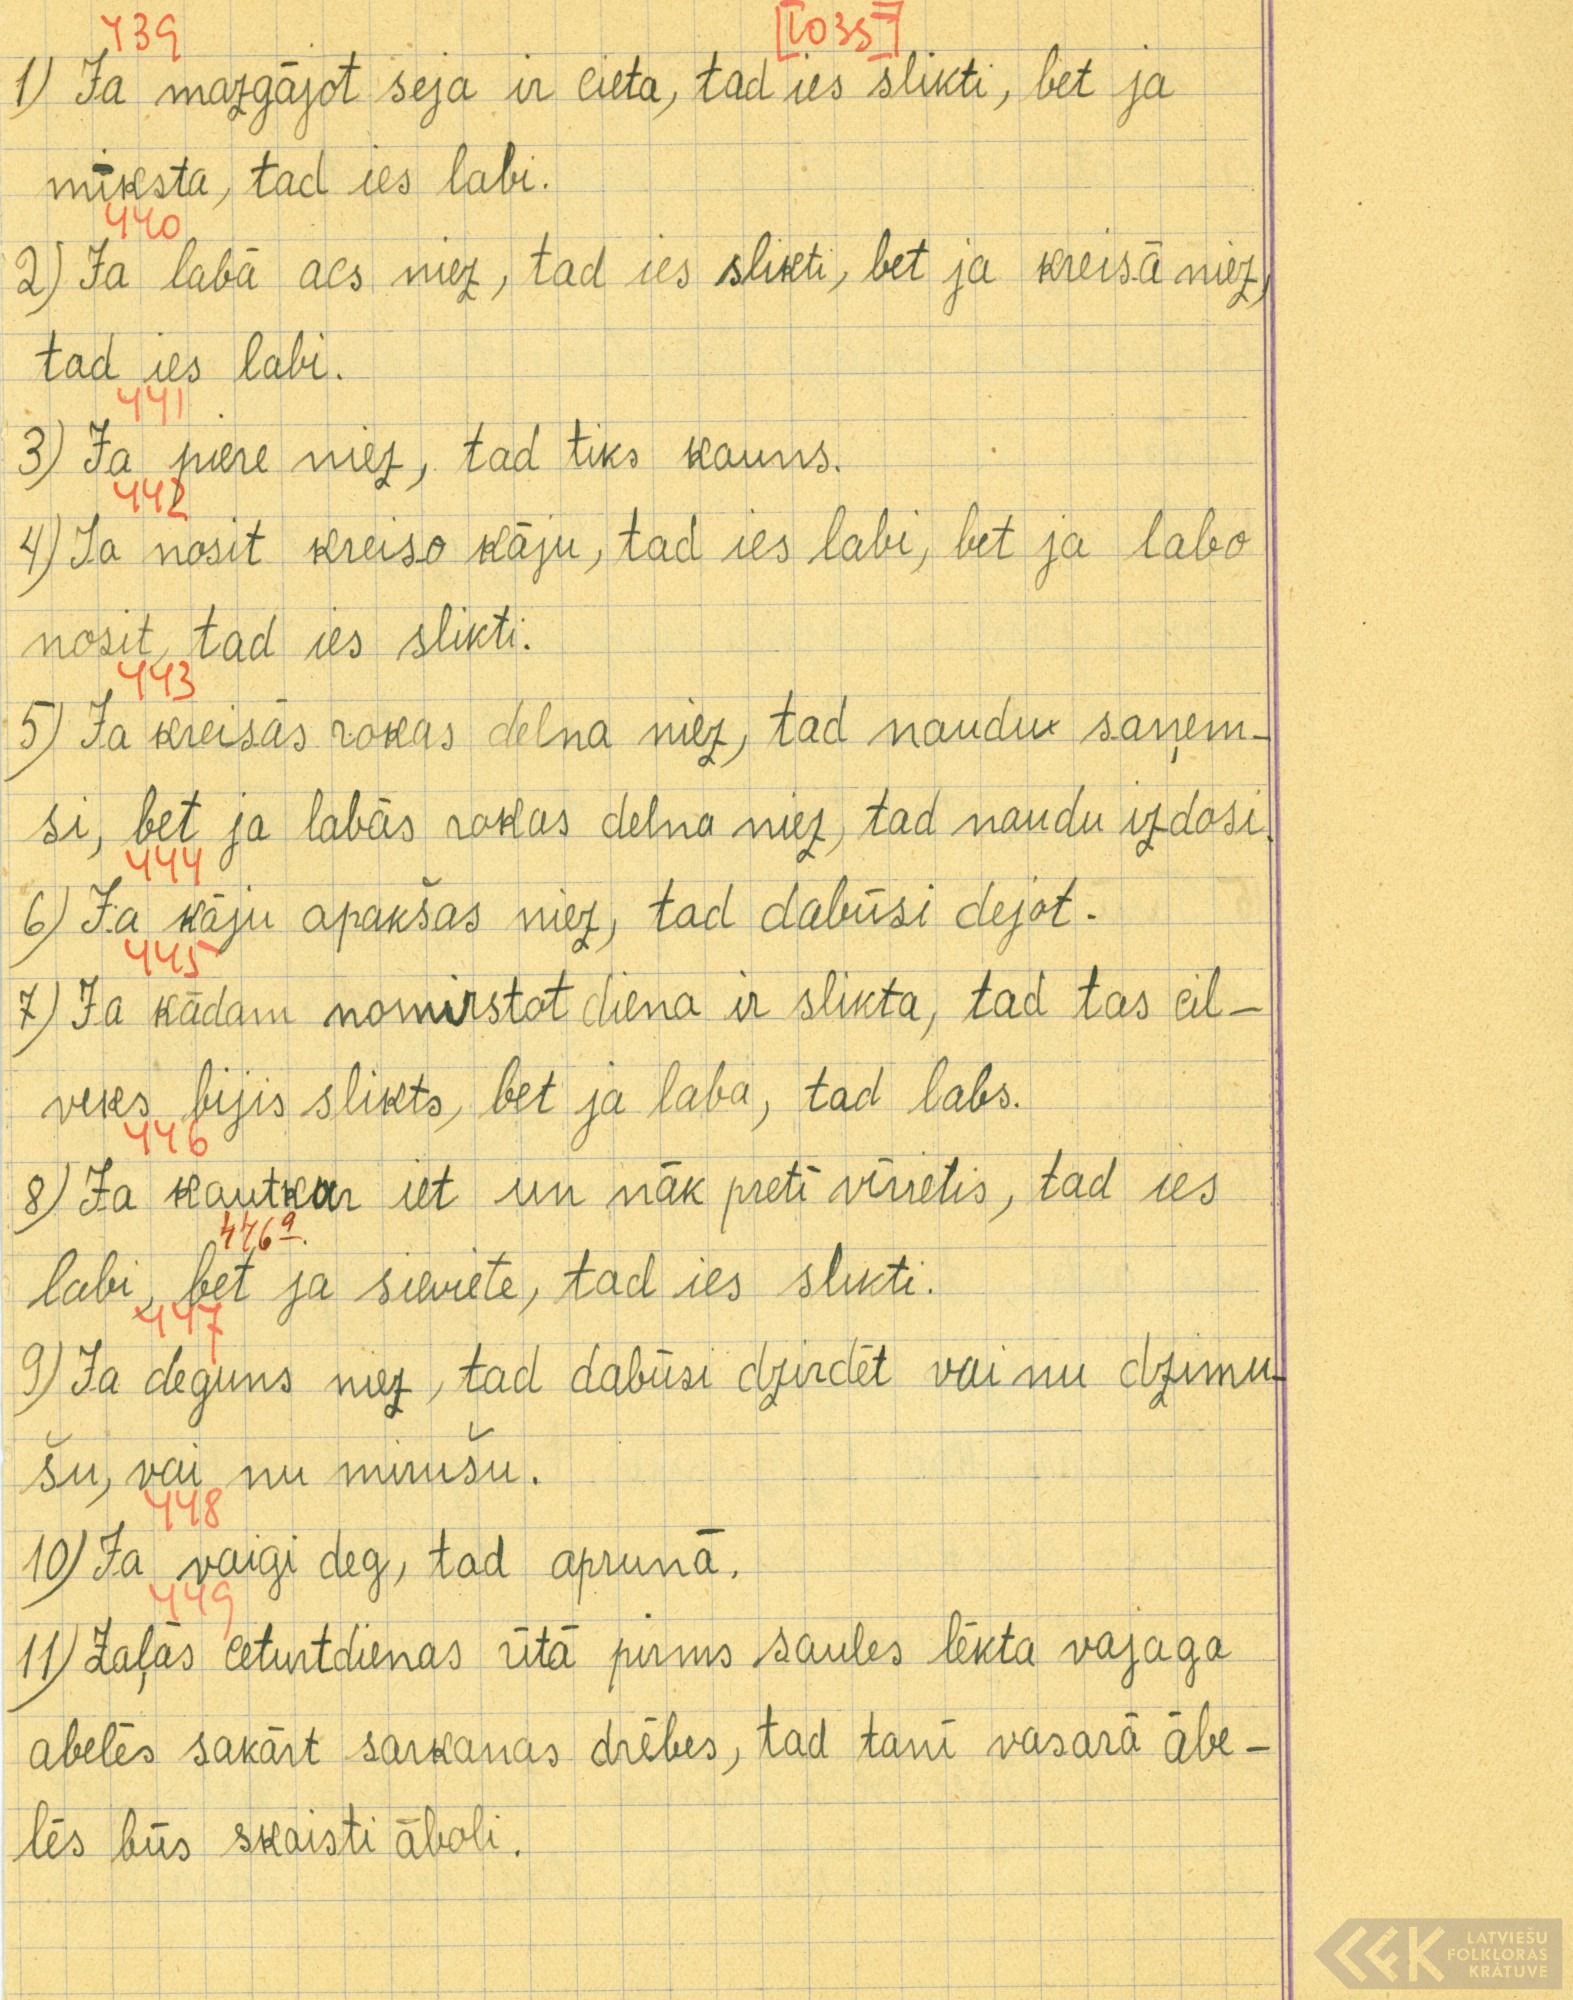 439 [1035]
1) Ja mazgājot seja ir cieta, tad ies slikti, bet ja
mīksta, tad ies labi.
440
2) Ja labā acs niez, tad ies slikti, bet ja kreisā niez,
tad ies labi.
441
3) Ja piere niez, tad tiks kauns.
442
4) Ja nosit kreiso kāju, tad ies labi, bet ja labo
nosit, tad ies slikti.
443
5) Ja kreisās rokas delna niez, tad naudu saņem-
si, bet ja labās rokas delna niez, tad naudu izdosi.
444
6) Ja kāju apakšas niez, tad dabūsi dejot.
445
7) Ja kādam nomirstot diena ir slikta, tad tas cil-
veks bijis slikts, bet ja laba, tad labs.
446
8) Ja kautkur iet un nāk pretī vīrietis, tad ies
446a.
labi, bet ja sieviete, tad ies slikti.
447
9) Ja deguns niez, tad dabūsi dzirdēt vai nu dzimu-
šu, vai nu mirušu.
448
10) Ja vaigi deg, tad aprunā.
449
11) Zaļās ceturtdienas rītā pirms saules lēkta vajaga
abelēs sakārt sarkanas drēbes, tad tanī vasarā ābe-
lēs būs skaisti āboli.
LATVIEŠU
FOLKLORAS
KRĀTUVE